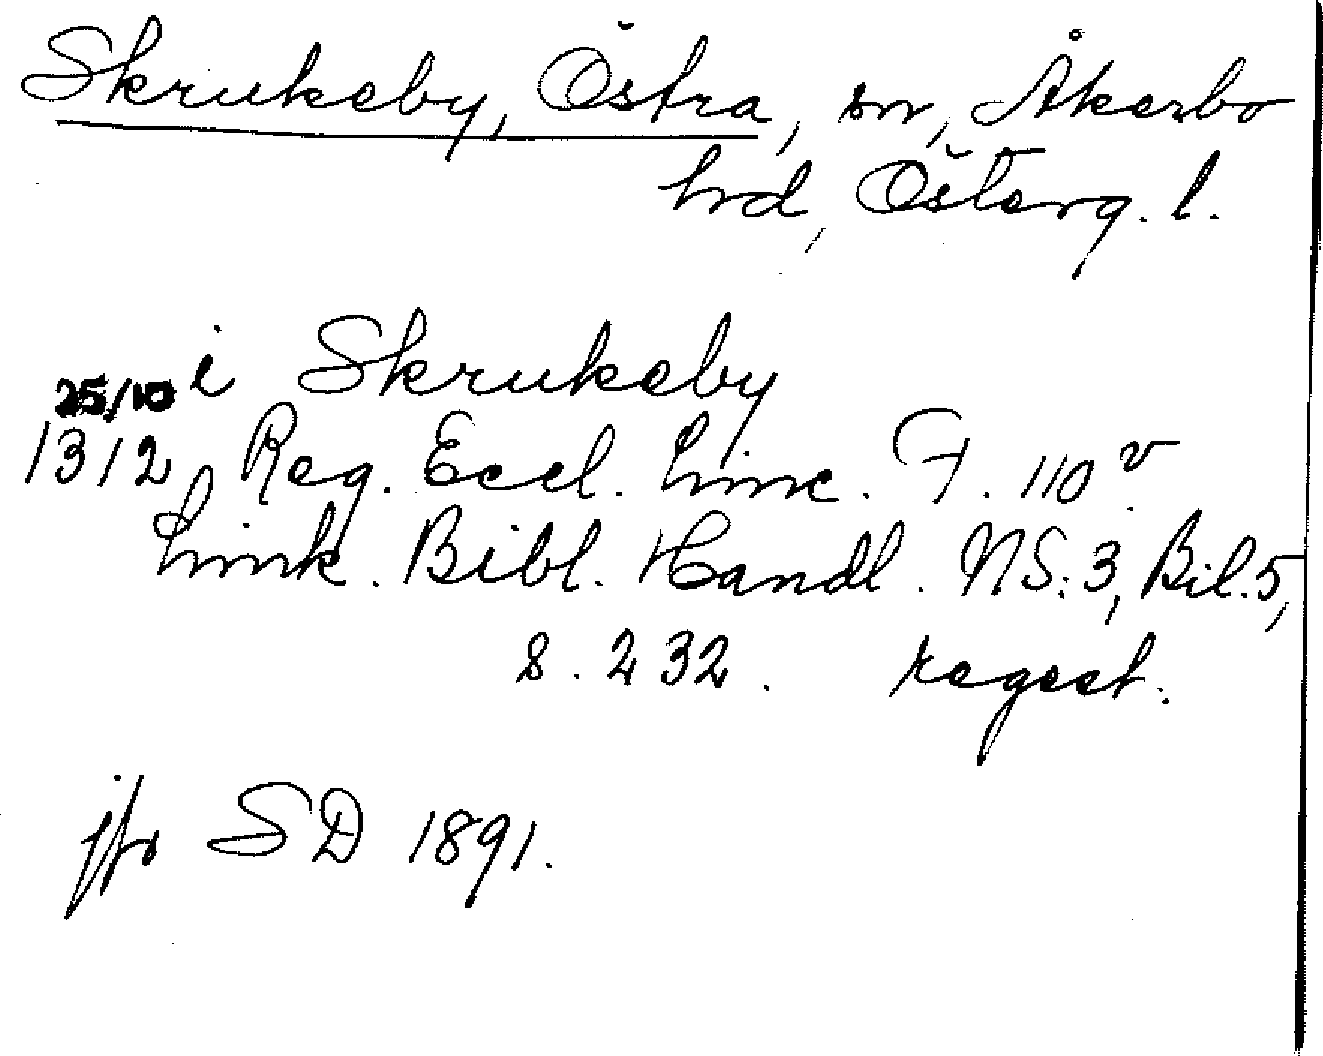 Skrukeby, Östra, sn, Åkerbo
hrd, Österg. l.
25/10 i Skrukeby
1312 Reg. Eccl. Linc. F. 110 v.
Link. Bibl. Handl. NS: 3, Bil. 5,
s. 232. regest.
jfr SD 1891.